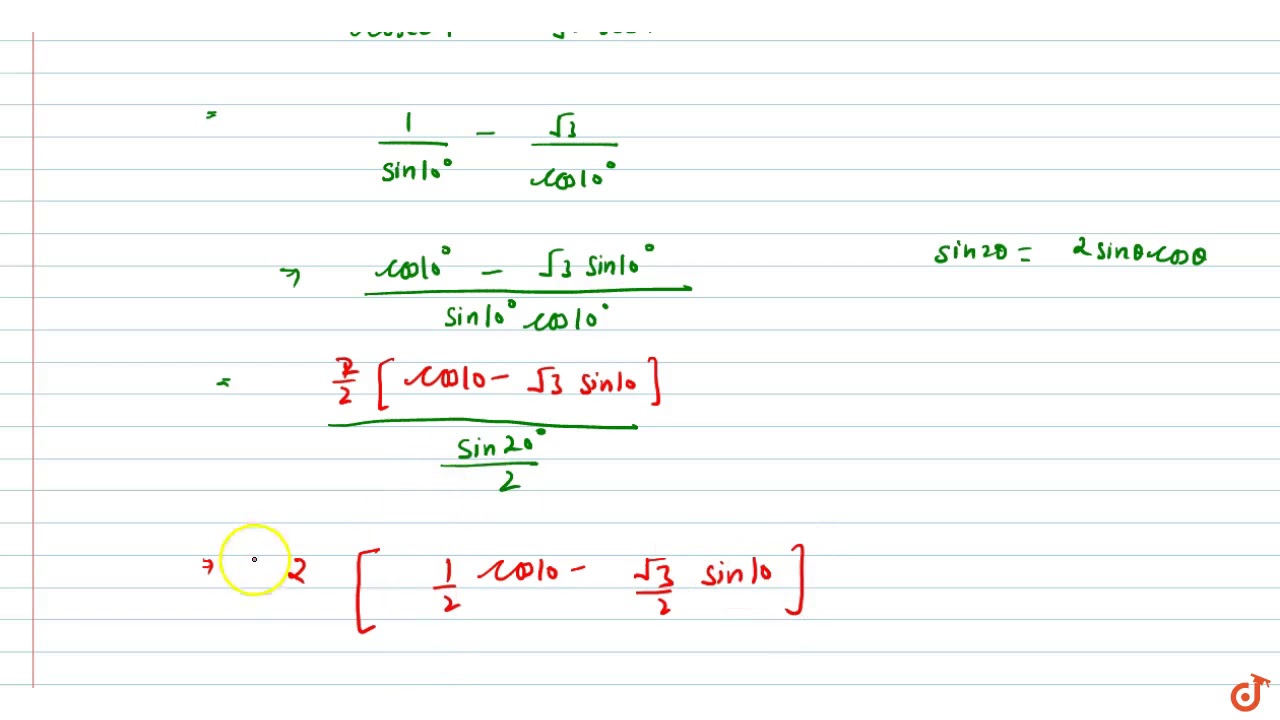 = 1/sin10° - √3/cos10°
⇒ cos10° - √3 sin10° / sin10° cos10°
sin2θ = 2sinθ.cosθ
= 2/2 [ cos10 - √3 sin10 ] / sin20°/2
⇒ 2 [ 1/2 cos10 - √3/2 sin10 ]